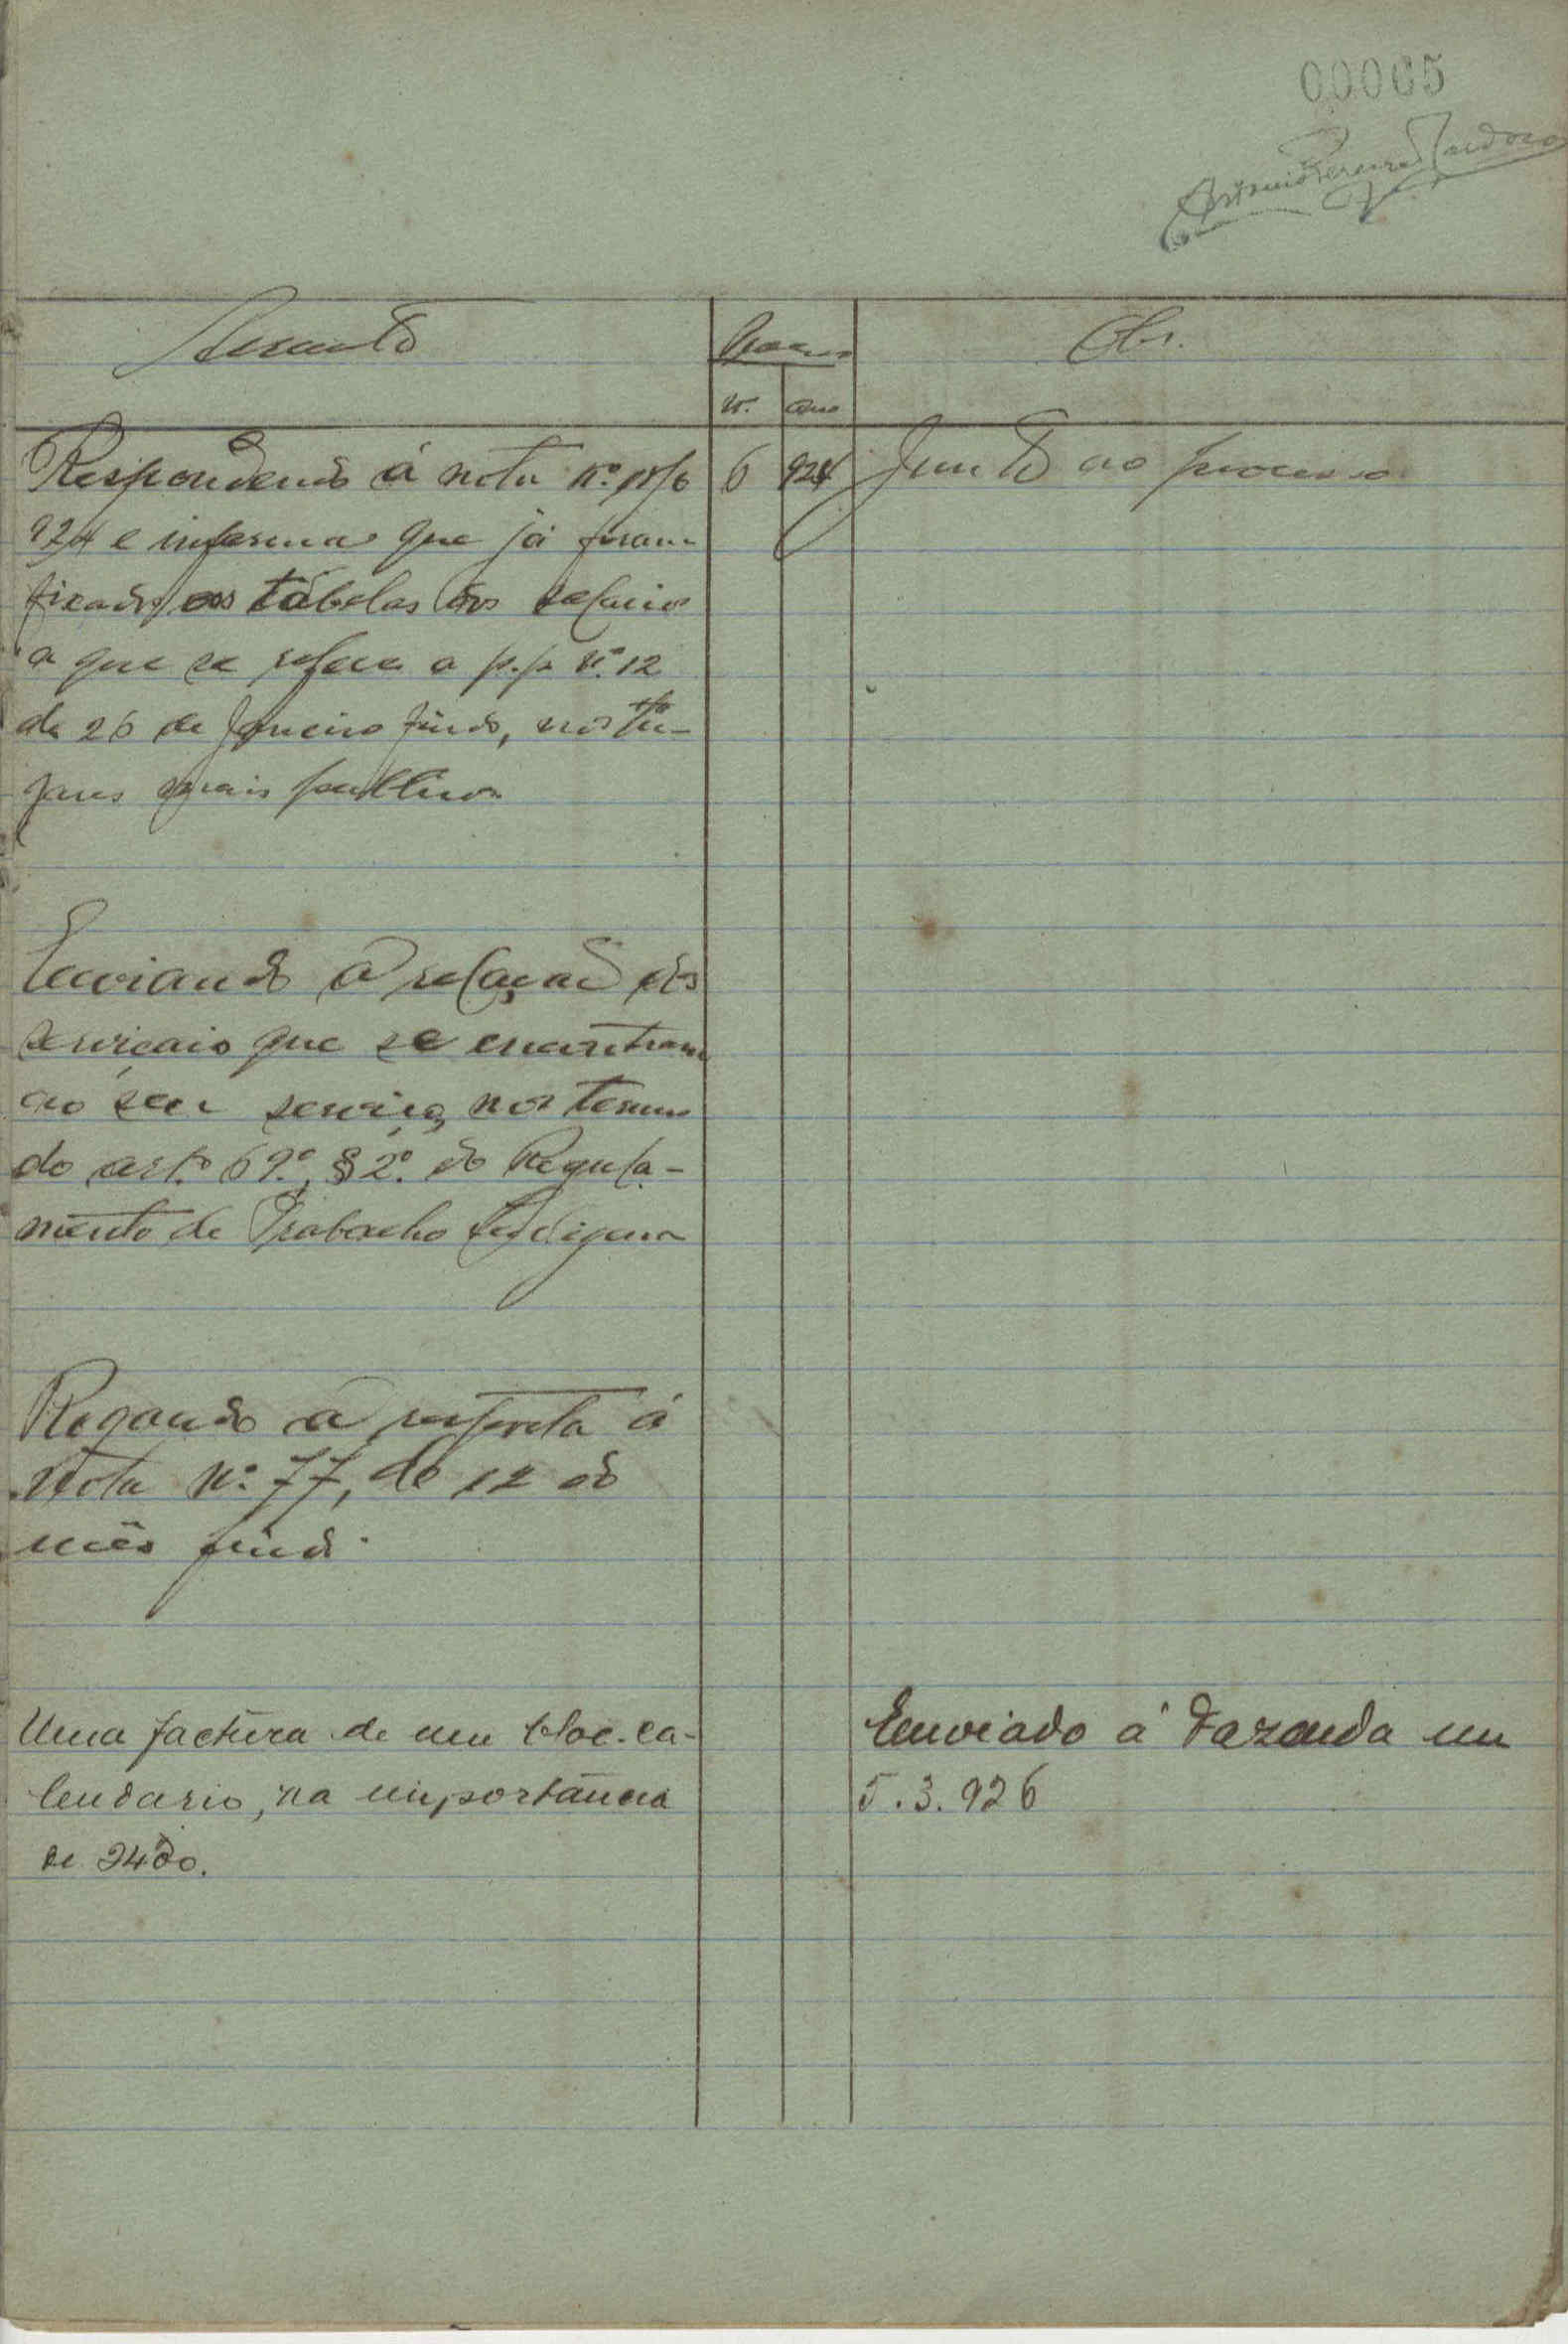 00065
Antonio Pereira Cardoso
Assunto
Proces.
Obs.
N.
ano
Respondendo á nota nº
6
924
Junto ao processo
924 e informa que já foram
fixados as tabelas dos salarios
a que se refere a p.p nº 12
de 26 de Janeiro findo, nos lu-
gares mais publicos
Enviando a relação dos
serviçais que se encontram
ao seu serviço, nos termos
do art.º 69.º, § 2.º do Regula-
mento de Trabalho Indigena
Rogando a resposta á
Nota Nº 77, de 12 do
mês findo.
Uma factura de um bloc-ca-
lendario, na importância
de 24$00.
Enviado á Fazenda em
5.3.926